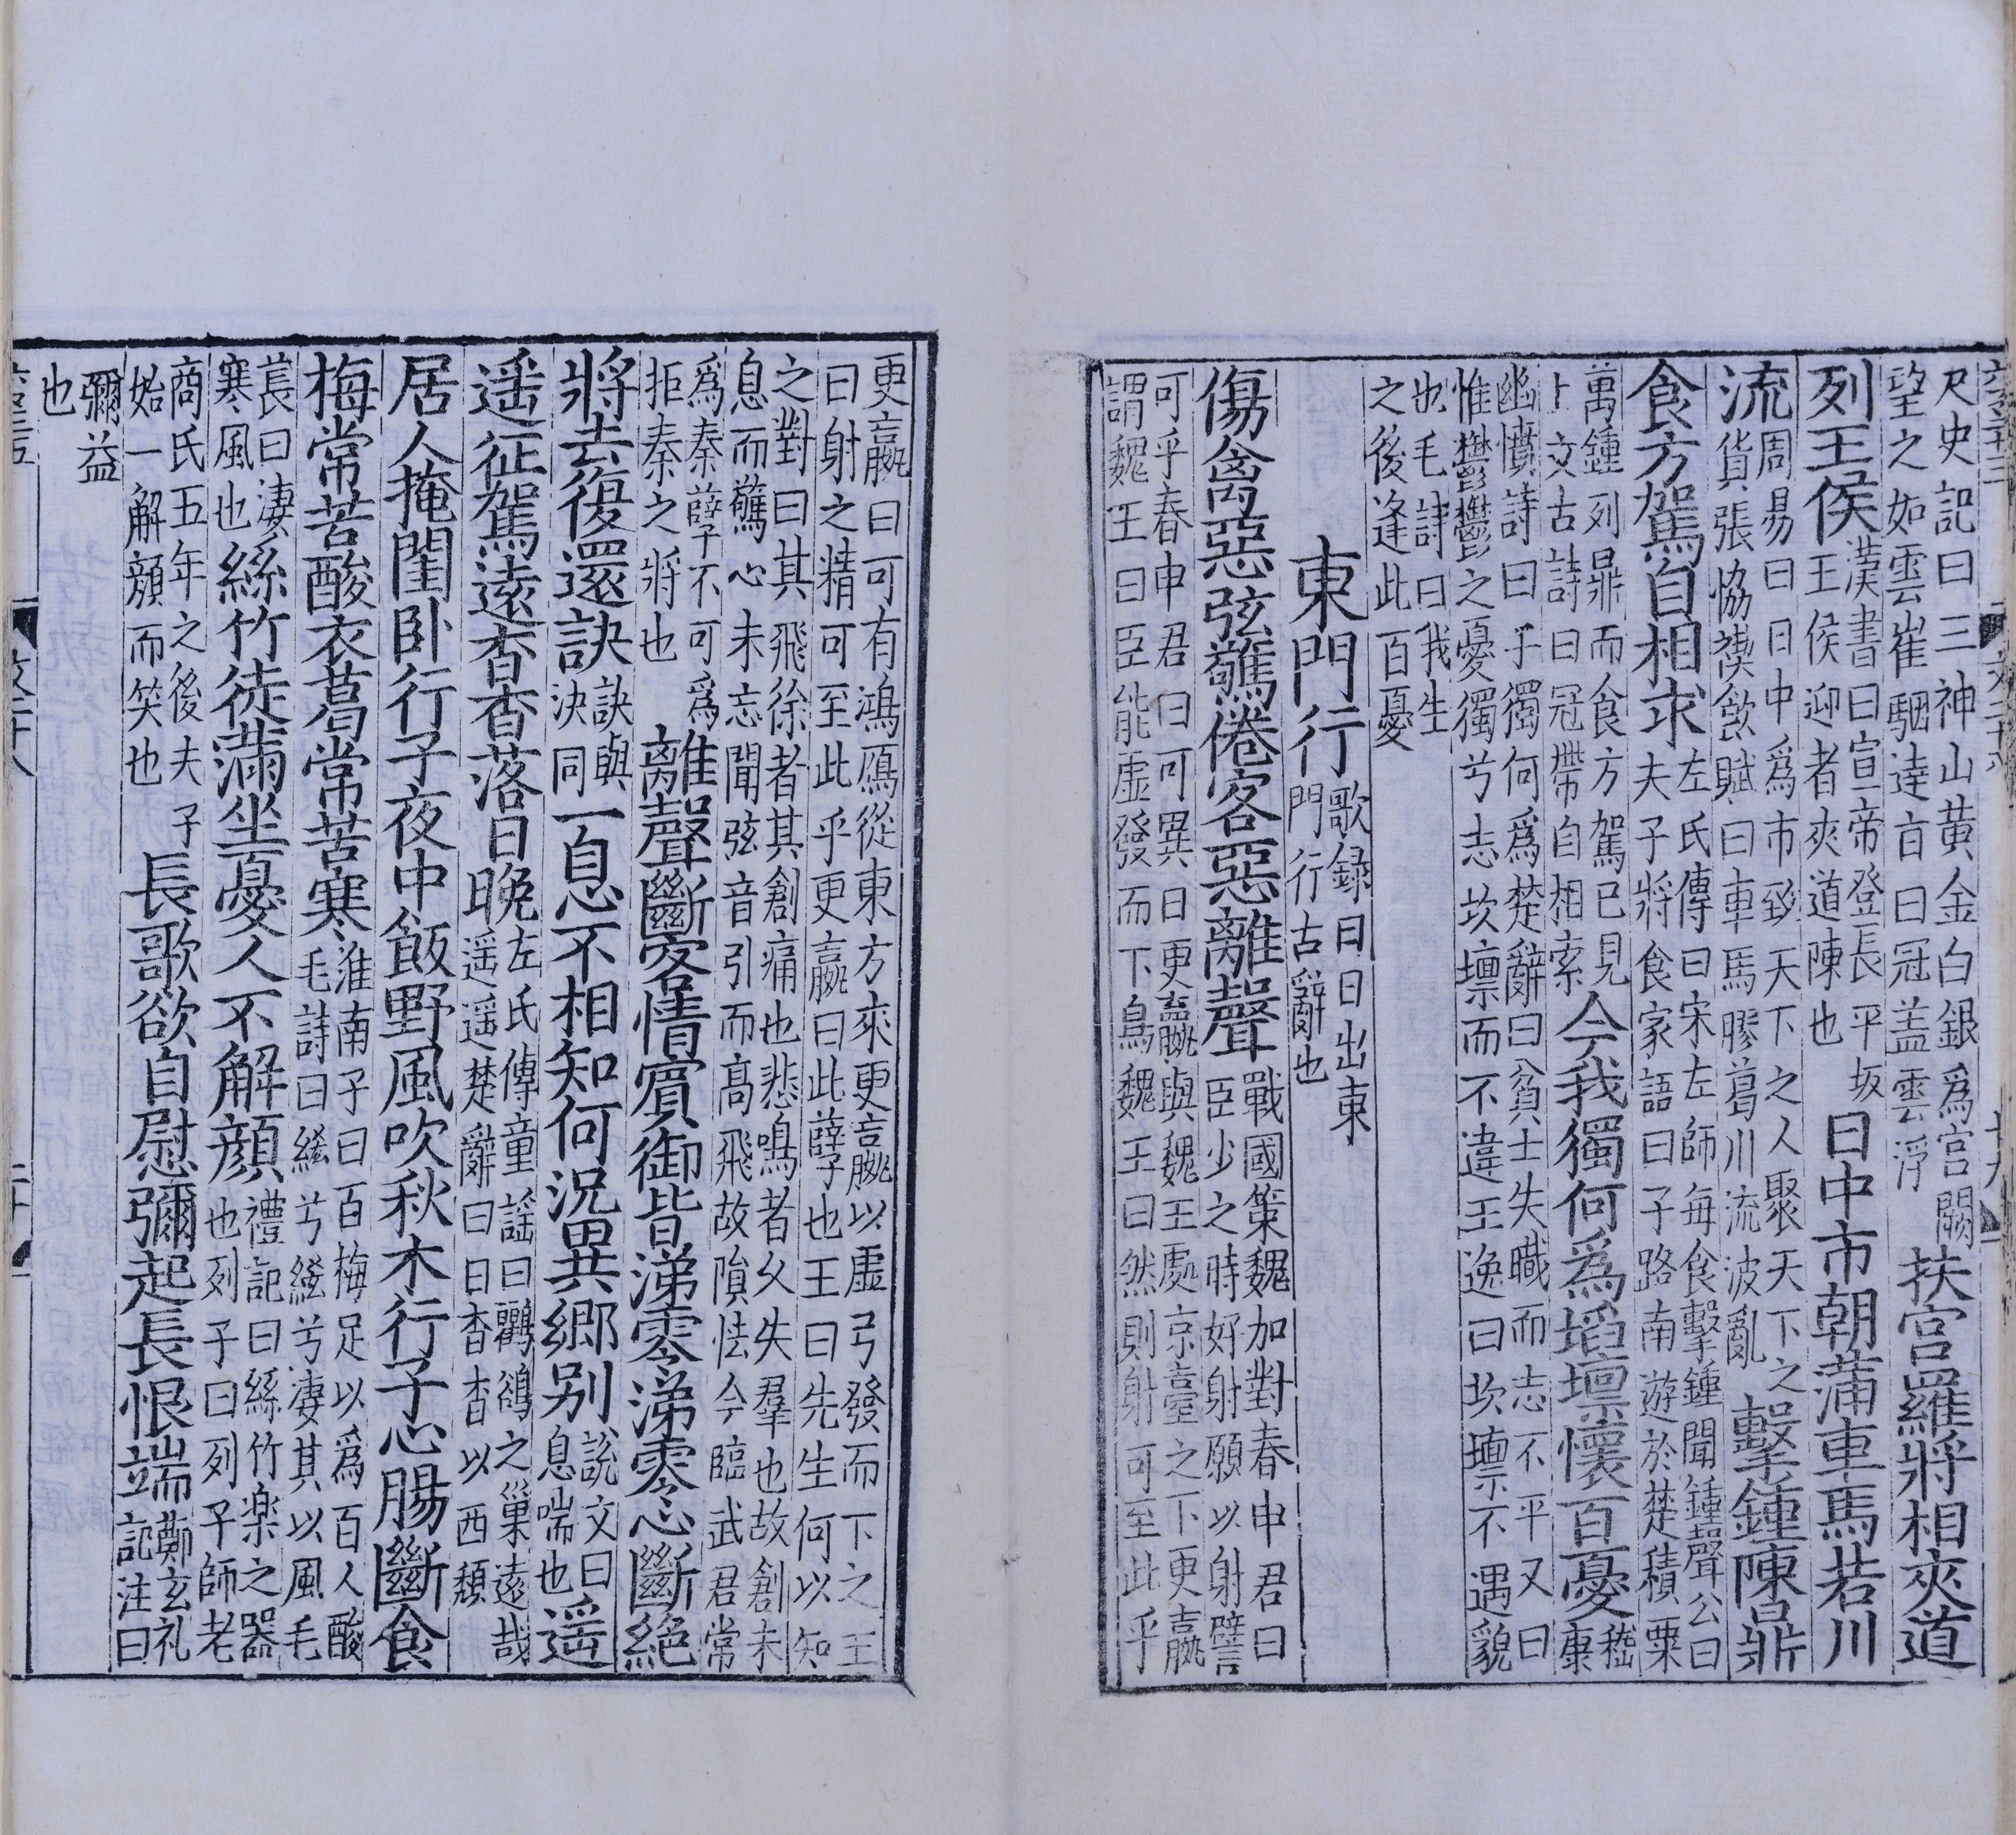 尺史記曰三神山黃金白銀爲宮闕
望之如雲崔駰達旨曰冠盖雲浮
扶宮羅將相夾道
列王侯
漢書曰宣帝登長平坂
王侯迎者夾道陳也
日中市朝滿車馬若川
流
周易曰日中爲市致天下之人聚天下之
貨張協禊飲賦曰車馬膠葛川流波亂
擊鍾陳鼎
食方駕自相求
左氏傳曰宋左師每食擊鍾聞鍾聲公曰
夫子將食家語曰子路南遊於楚積粟
萬鍾列鼎而食方駕已見
上文古詩曰冠帶自相索
今我獨何爲埳壈懷百憂
嵇
康
幽憤詩曰予獨何爲楚辭曰貧士失職而志不平又曰
惟鬱鬱之憂獨兮志坎壈而不違王逸曰坎壈不遇貌
也毛詩曰我生
之後逢此百憂
東門行
歌録曰日出東
門行古辭也
傷禽惡弦驚倦客惡離聲
戰國策魏加對春申君曰
臣少之時好射願以射譬
可乎春申君曰可異日更羸與魏王處京臺之下更羸
謂魏王曰臣能虛發而下鳥魏王曰然則射可至此乎
更羸曰可有鴻鴈從東方來更羸以虛弓發而下之王
曰射之精可至此乎更羸曰此孽也王曰先生何以知
之對曰其飛徐者其創痛也悲鳴者久失羣也故創未
息而驚心未忘聞弦音引而髙飛故隕怯今臨武君常
爲秦孽不可爲
拒秦之將也
離聲斷客情賓御皆涕零涕零心斷絕
將去復還訣
訣與
决同
一息不相知何況異鄉别
說文曰
息喘也
遥
遥征駕遠杳杳落日晚
左氏傳童謡曰鸜鵒之巢遠哉
遥遥楚辭曰日杳杳以西頽
居人掩閨卧行子夜中飯野風吹秋木行子心腸斷食
梅常苦酸衣葛常苦寒
淮南子曰百梅足以爲百人酸
毛詩曰絺兮綌兮凄其以風毛
萇曰凄
寒風也
絲竹徒滿坐憂人不解顔
禮記曰絲竹樂之器
也列子曰列子師老
商氏五年之後夫子
始一解顔而笑也
長歌欲自慰彌起長恨端
鄭玄礼
記注曰
彌益
也